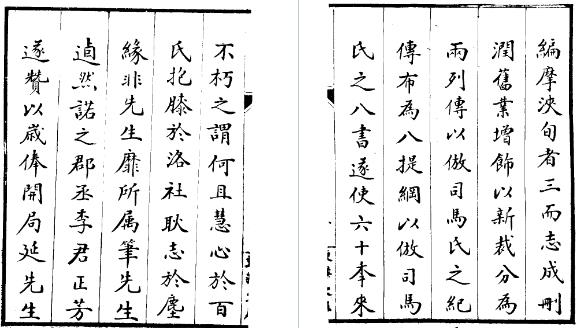 編摩浹旬者三而志成刪
潤舊業增飾以新裁分為
兩列傳以倣司馬氏之紀
傳布為八提綱以倣司馬
氏之八書遂使六十秊來
不朽之謂何且慧心於百
氏抱膝於洛社耿志於塵
緣非先生靡所属筆先生
逌然諾之郡丞李君正芳
遂贊以歲俸開局延先生